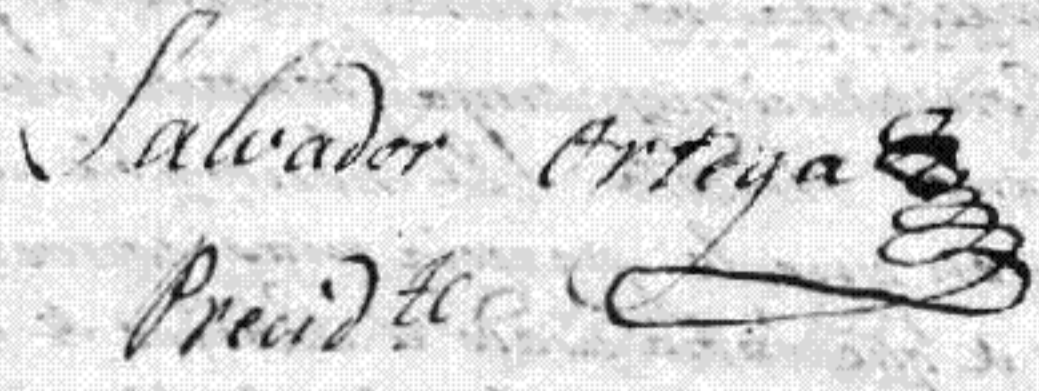 Salvador Ortega
Precidte